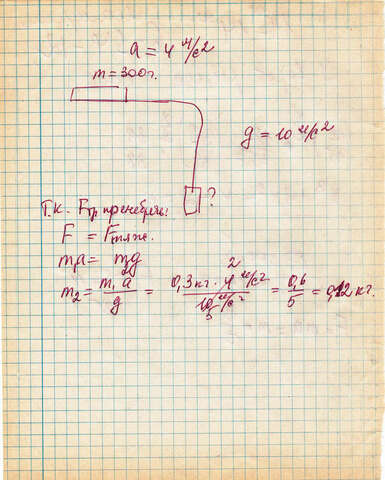 a = 4 м/с²
m = 300 г.
g = 10 м/с²
?
Т.к. Fтр пренебреч.
F = Fтяж.
m₁a = m₂g
m₂ = m₁a/g = 0,3 кг · 4 м/с² / 10 м/с² = 0,6/5 = 0,12 кг.
2
5